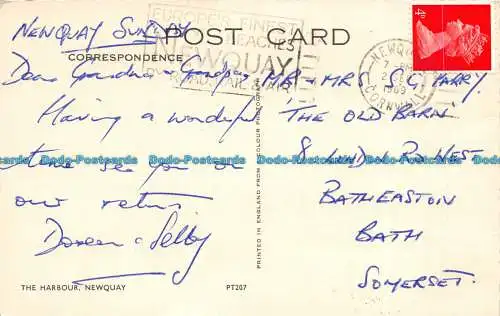 NEWQUAY SUNDAY
POST CARD
CORRESPONDENCE
EUROPE'S FINEST
BEACHES
NEWQUAY
4D
NEWQUAY
7-PM
1969
CORNWALL
Dear Grandma & Grandpa
Having a wonderful
time see you on
our return
Doreen & Selby
MR & MRS C.G. PARRY.
THE OLD BARN
8 LONDON RD WEST
BATHEASTON
BATH
SOMERSET.
Dado-Postcards Dado-Postcards Dado-Postcards Dado-Postcards
PRINTED IN ENGLAND FROM A COLOUR PHOTOGRAPH
THE HARBOUR, NEWQUAY
PT207